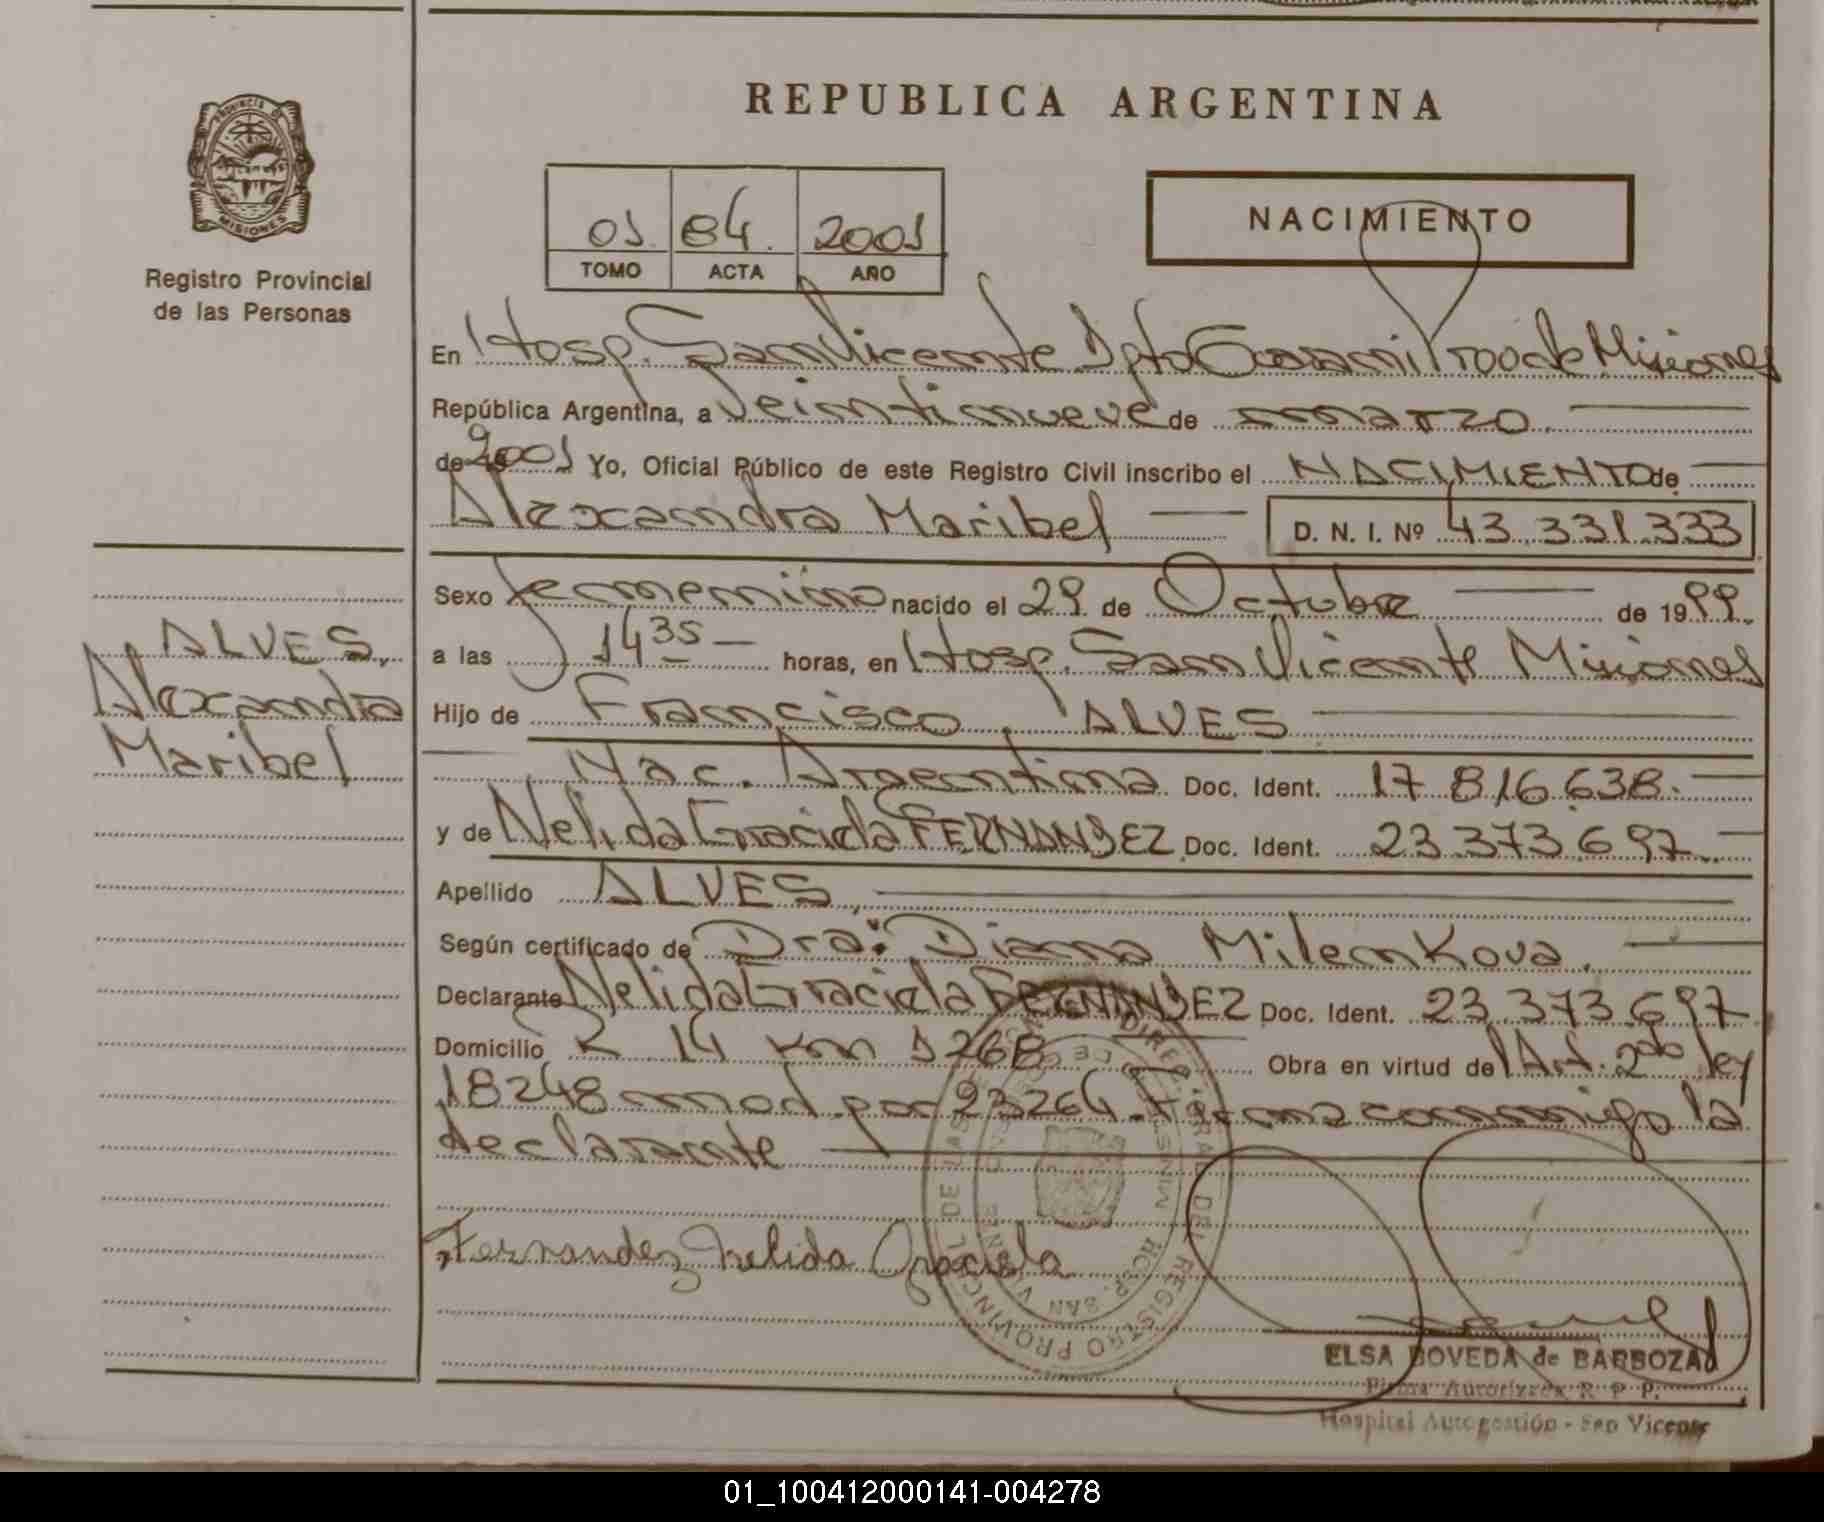 REPUBLICA ARGENTINA
PROVINCIA DE
MISIONES
Registro Provincial
de las Personas
01 84. 2001
TOMO ACTA AÑO
NACIMIENTO
En Hosp. San Vicente Dpto Guarani Prov de Misiones
República Argentina, a Veintinueve de marzo.
de 2001 Yo, Oficial Público de este Registro Civil inscribo el NACIMIENTO de
Alexandra Maribel D. N. I. Nº 43.331.333
Sexo femenino nacido el 29 de Octubre de 1999.
a las 14 35 horas, en Hosp. San Vicente Misiones
Hijo de Francisco, ALVES
Nac. Argentina. Doc. Ident. 17 816 638.
y de Nelida Graciela FERNANDEZ Doc. Ident. 23 373 697
Apellido ALVES,
Según certificado de Dra: Diana Milenkova.
Declarante Nelida Graciela FERNANDEZ Doc. Ident. 23 373 697
Domicilio R 14 Km 1268 Obra en virtud del Art. 2do ley
18248 mod. por 23264. Firma conmigo la
declarante
ALVES,
Alexandra
Maribel
Fernandez Nelida Graciela
REGISTRO PROVINCIAL DE LAS
HOSP. SAN VICENTE
ELSA BOVEDA de BARBOZA
Firma Autorizada R. P. P.
Hospital Autogestión - San Vicente
01_100412000141-004278